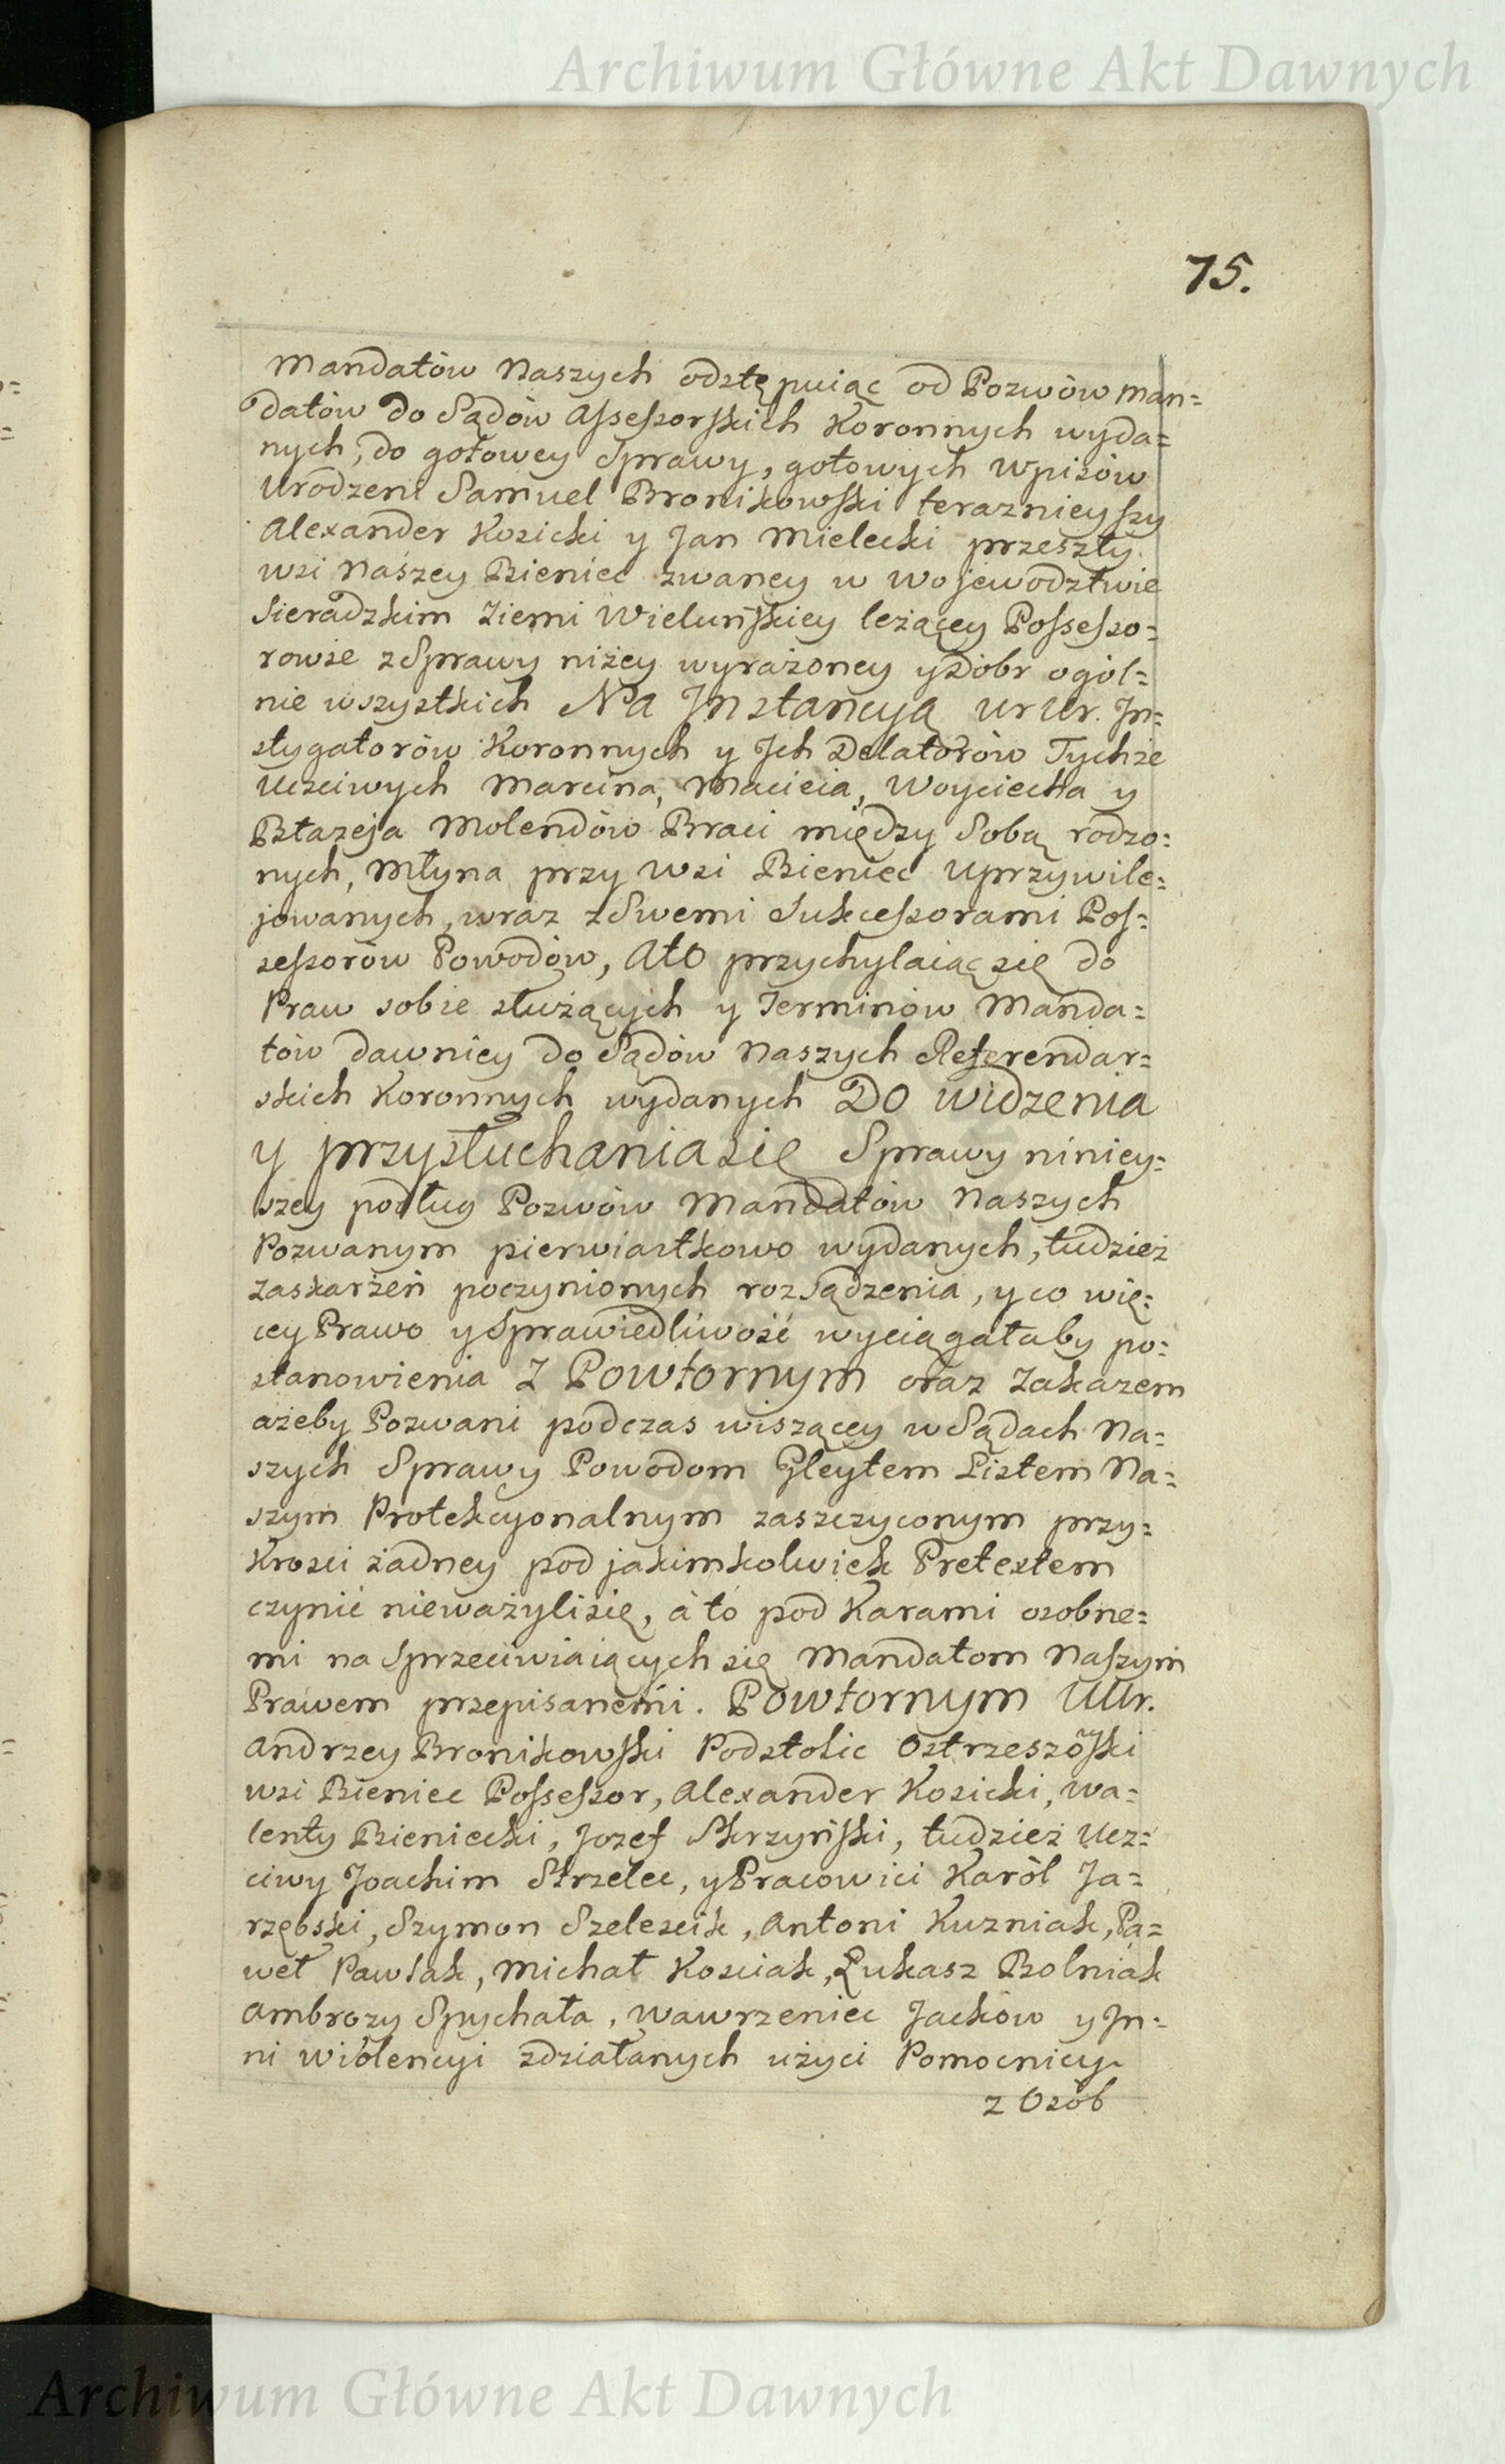 Archiwum Główne Akt Dawnych
75.
Mandatów Naszych odstępuiąc od Pozwów Man=
datów do Sądów Assessorskich Koronnych wyda=
nych, do gotowey Sprawy, gotowych Wpisów
Urodzeni Samuel Bronikowski terazniey szy
Alexander Kosicki y Jan Mielecki przeszły
wsi Naszey Bieniec zwaney w Wojewodztwie
Sieradzkim Ziemi Wieluńskiey leżącey Possesso=
rowie z Sprawy niżey wyrażoney y Dóbr ogól=
nie wszystkich Na Jnstancyą Ur Ur. Jn=
stygatorów Koronnych y Jch Delatorów Tychże
Uczciwych Marcina, Macieia, Woyciecha y
Błazeja Molendów Braci między Sobą rodzo=
nych, Młyna przy Wsi Bieniec Uprzywile=
jowanych, wraz z Swemi Sukcessorami Pos=
sessorów Powodów, Ato przychylaiąc się do
Praw sobie służących y Terminów Manda=
tów dawniey do Sądów Naszych Referendar=
skich Koronnych wydanych Do widzenia
y przysłuchania się Sprawy niniey=
szey podług Pozwów Mandatów Naszych
Pozwanym pierwiastkowo wydanych, tudzież
zaskarżeń poczynionych rozsądzenia, y co wię=
cey Prawo y Sprawiedliwość wyciągałaby po=
stanowienia Z Powtornym oraz Zakazem
ażeby Pozwani podczas wiszącey w Sądach Na=
szych Sprawy Powodom Gleytem Listem Na=
szym Protekcyonalnym zaszczyconym przy=
krosci żadney pod jakimkolwiek Pretextem
czynić nieważyli się, à to pod Karami osobne=
mi na Sprzeciwiaiących się Mandatom Naszym
Prawem przepisanemi. Powtornym UUr.
Andrzey Bronikowski Podstolic Ostrzeszõski
wsi Bieniec Possessor, Alexander Kosicki, Wa=
lenty Bieniecki, Jozef Skrzyński, tudzież Ucz=
ciwy Joachim Strzelec, y Pracowici Karól Ja=
rzębski, Szymon Szelescik, Antoni Kuzniak, Pa=
weł Pawlak, Michał Kosciak, Łukasz Bolniak
Ambrozy Spychała, Wawrzeniec Jacków y Jn=
ni wiólencyi zdziałanych użyci Pomocnicy
z Osób
Archiwum Główne Akt Dawnych